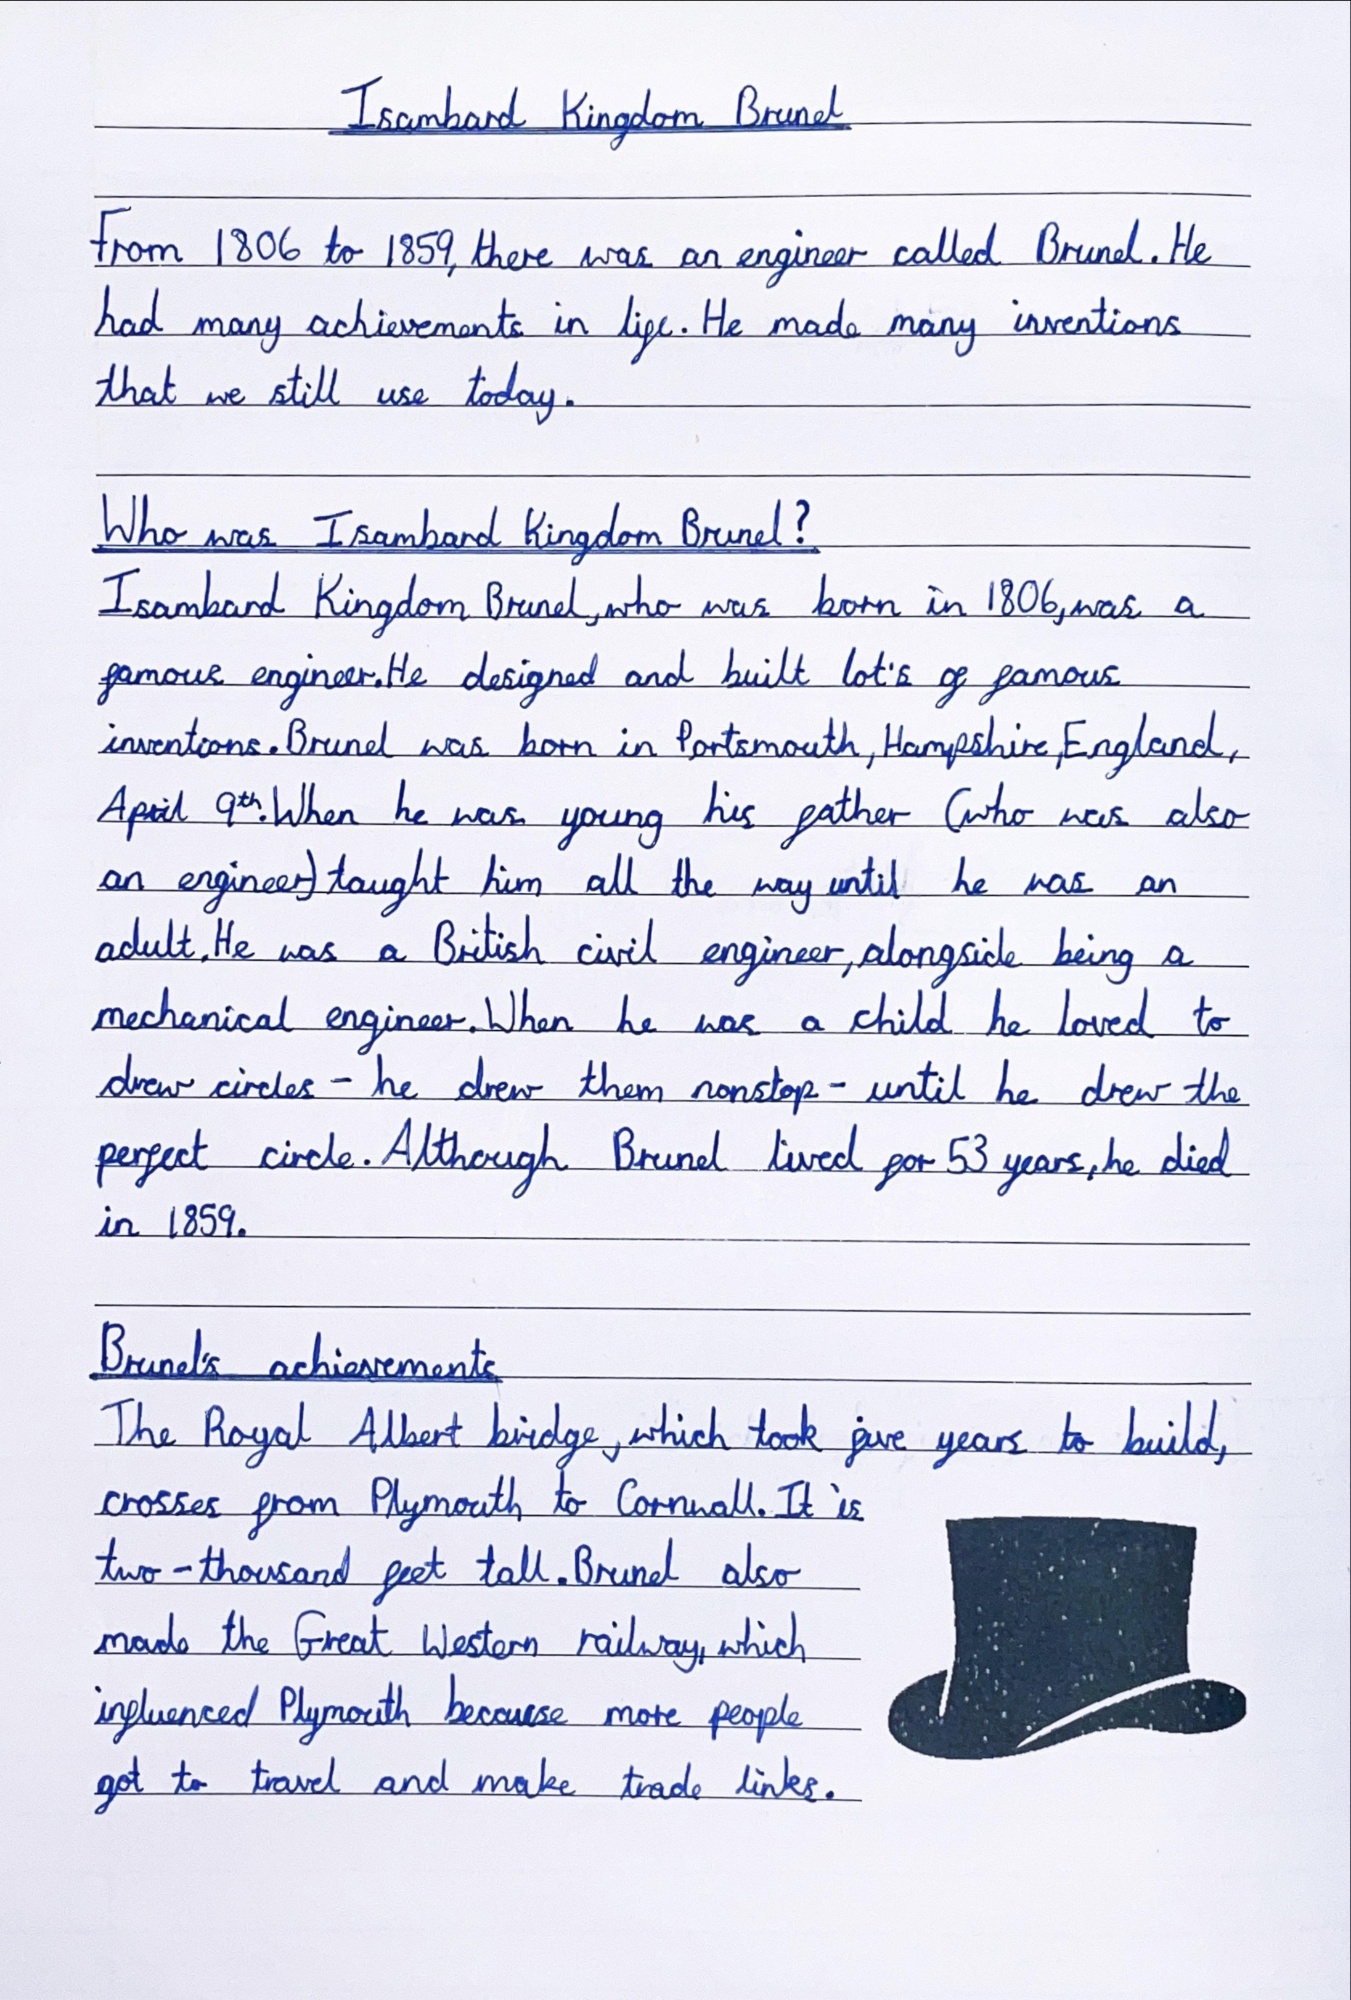 Isambard Kingdom Brunel
From 1806 to 1859, there was an engineer called Brunel. He
had many achievements in life. He made many inventions
that we still use today.
Who was Isambard Kingdom Brunel?
Isambard Kingdom Brunel, who was born in 1806, was a
famous engineer. He designed and built lot's of famous
inventions. Brunel was born in Portsmouth, Hampshire, England,
April 9th. When he was young his father (who was also
an engineer) taught him all the way until he was an
adult. He was a British civil engineer, alongside being a
mechanical engineer. When he was a child he loved to
drew circles - he drew them nonstop - until he drew the
perfect circle. Although Brunel lived for 53 years, he died
in 1859.
Brunel's achievements
The Royal Albert bridge, which took five years to build,
crosses from Plymouth to Cornwall. It is
two-thousand feet tall. Brunel also
made the Great Western railway, which
influenced Plymouth because more people
got to travel and make trade links.